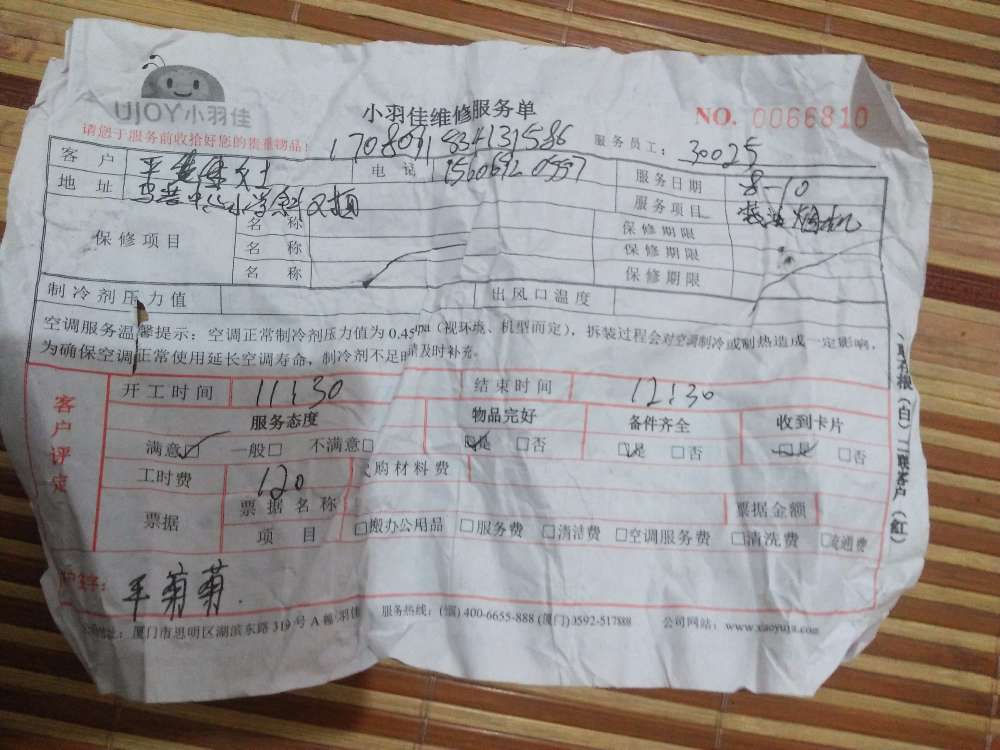 UJOY小羽佳
小羽佳维修服务单
NO. 0066810
请您于服务前收拾好您的贵重物品!
服务员工: 30025
客户 女士 电话 服务日期 8-10
地址 服务项目
保修项目 名称 保修期限
名称 保修期限
名称 保修期限
制冷剂压力值 出风口温度
空调服务温馨提示: 空调正常制冷剂压力值为 0.45mpa (视环境、机型而定), 拆装过程会对空调制冷或制热造成一定影响,
为确保空调正常使用延长空调寿命, 制冷剂不足时请及时补充。
客户评定
开工时间 11:30 结束时间 12:30
服务态度 物品完好 备件齐全 收到卡片
满意□ 一般□ 不满意□ □是 □否 □是 □否 □是 □否
工时费 120 购材料费
票据 票据名称 票据金额
项目 □搬办公用品 □服务费 □清洁费 □空调服务费 □清洗费 □疏通费
平菊菊
厦门市思明区湖滨东路 319 号 A 幢 羽佳 服务热线: 400-6655-888 (厦门) 0592-517888 公司网站: www.xiaoyujia.com
(白) 二联客户 (红)